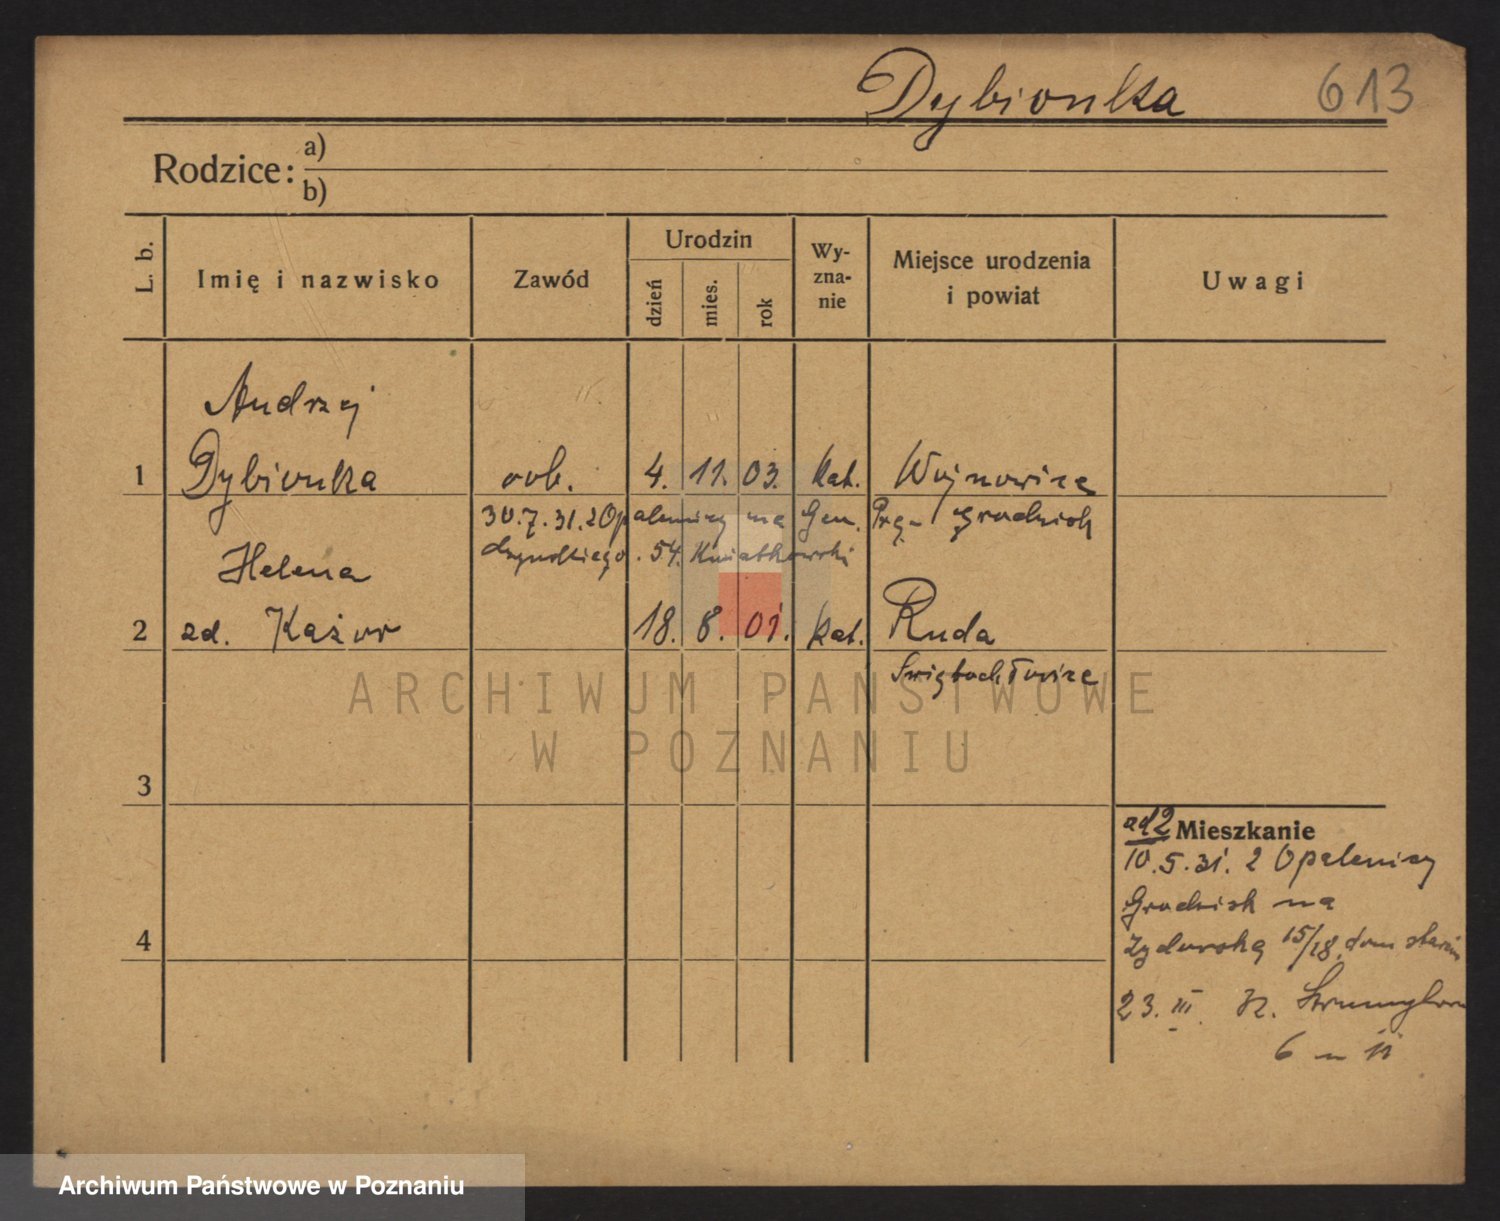 Dybionka 613
Rodzice: a)
b)
L. b.
Imię i nazwisko
Zawód
Urodzin
dzień
mies.
rok
Wy-
zna-
nie
Miejsce urodzenia
i powiat
Uwagi
Andrzej
1 Dybionka rob. 4. 11. 03. kat. Wojnowice
30.7.31. z Opalenicy na Gen. Prą-
grodzisk
dzyńskiego. 54. Kwiatkowski
Helena
2 zd. Każor 18. 8. 01. kat. Ruda
Świętochłowice
ARCHIWUM PAŃSTWOWE
W POZNANIU
3
4
ad 2 Mieszkanie
10.5.31. z Opalenicy
Grodzisk na
15/18. dom
23. III.
6 m 11
Archiwum Państwowe w Poznaniu